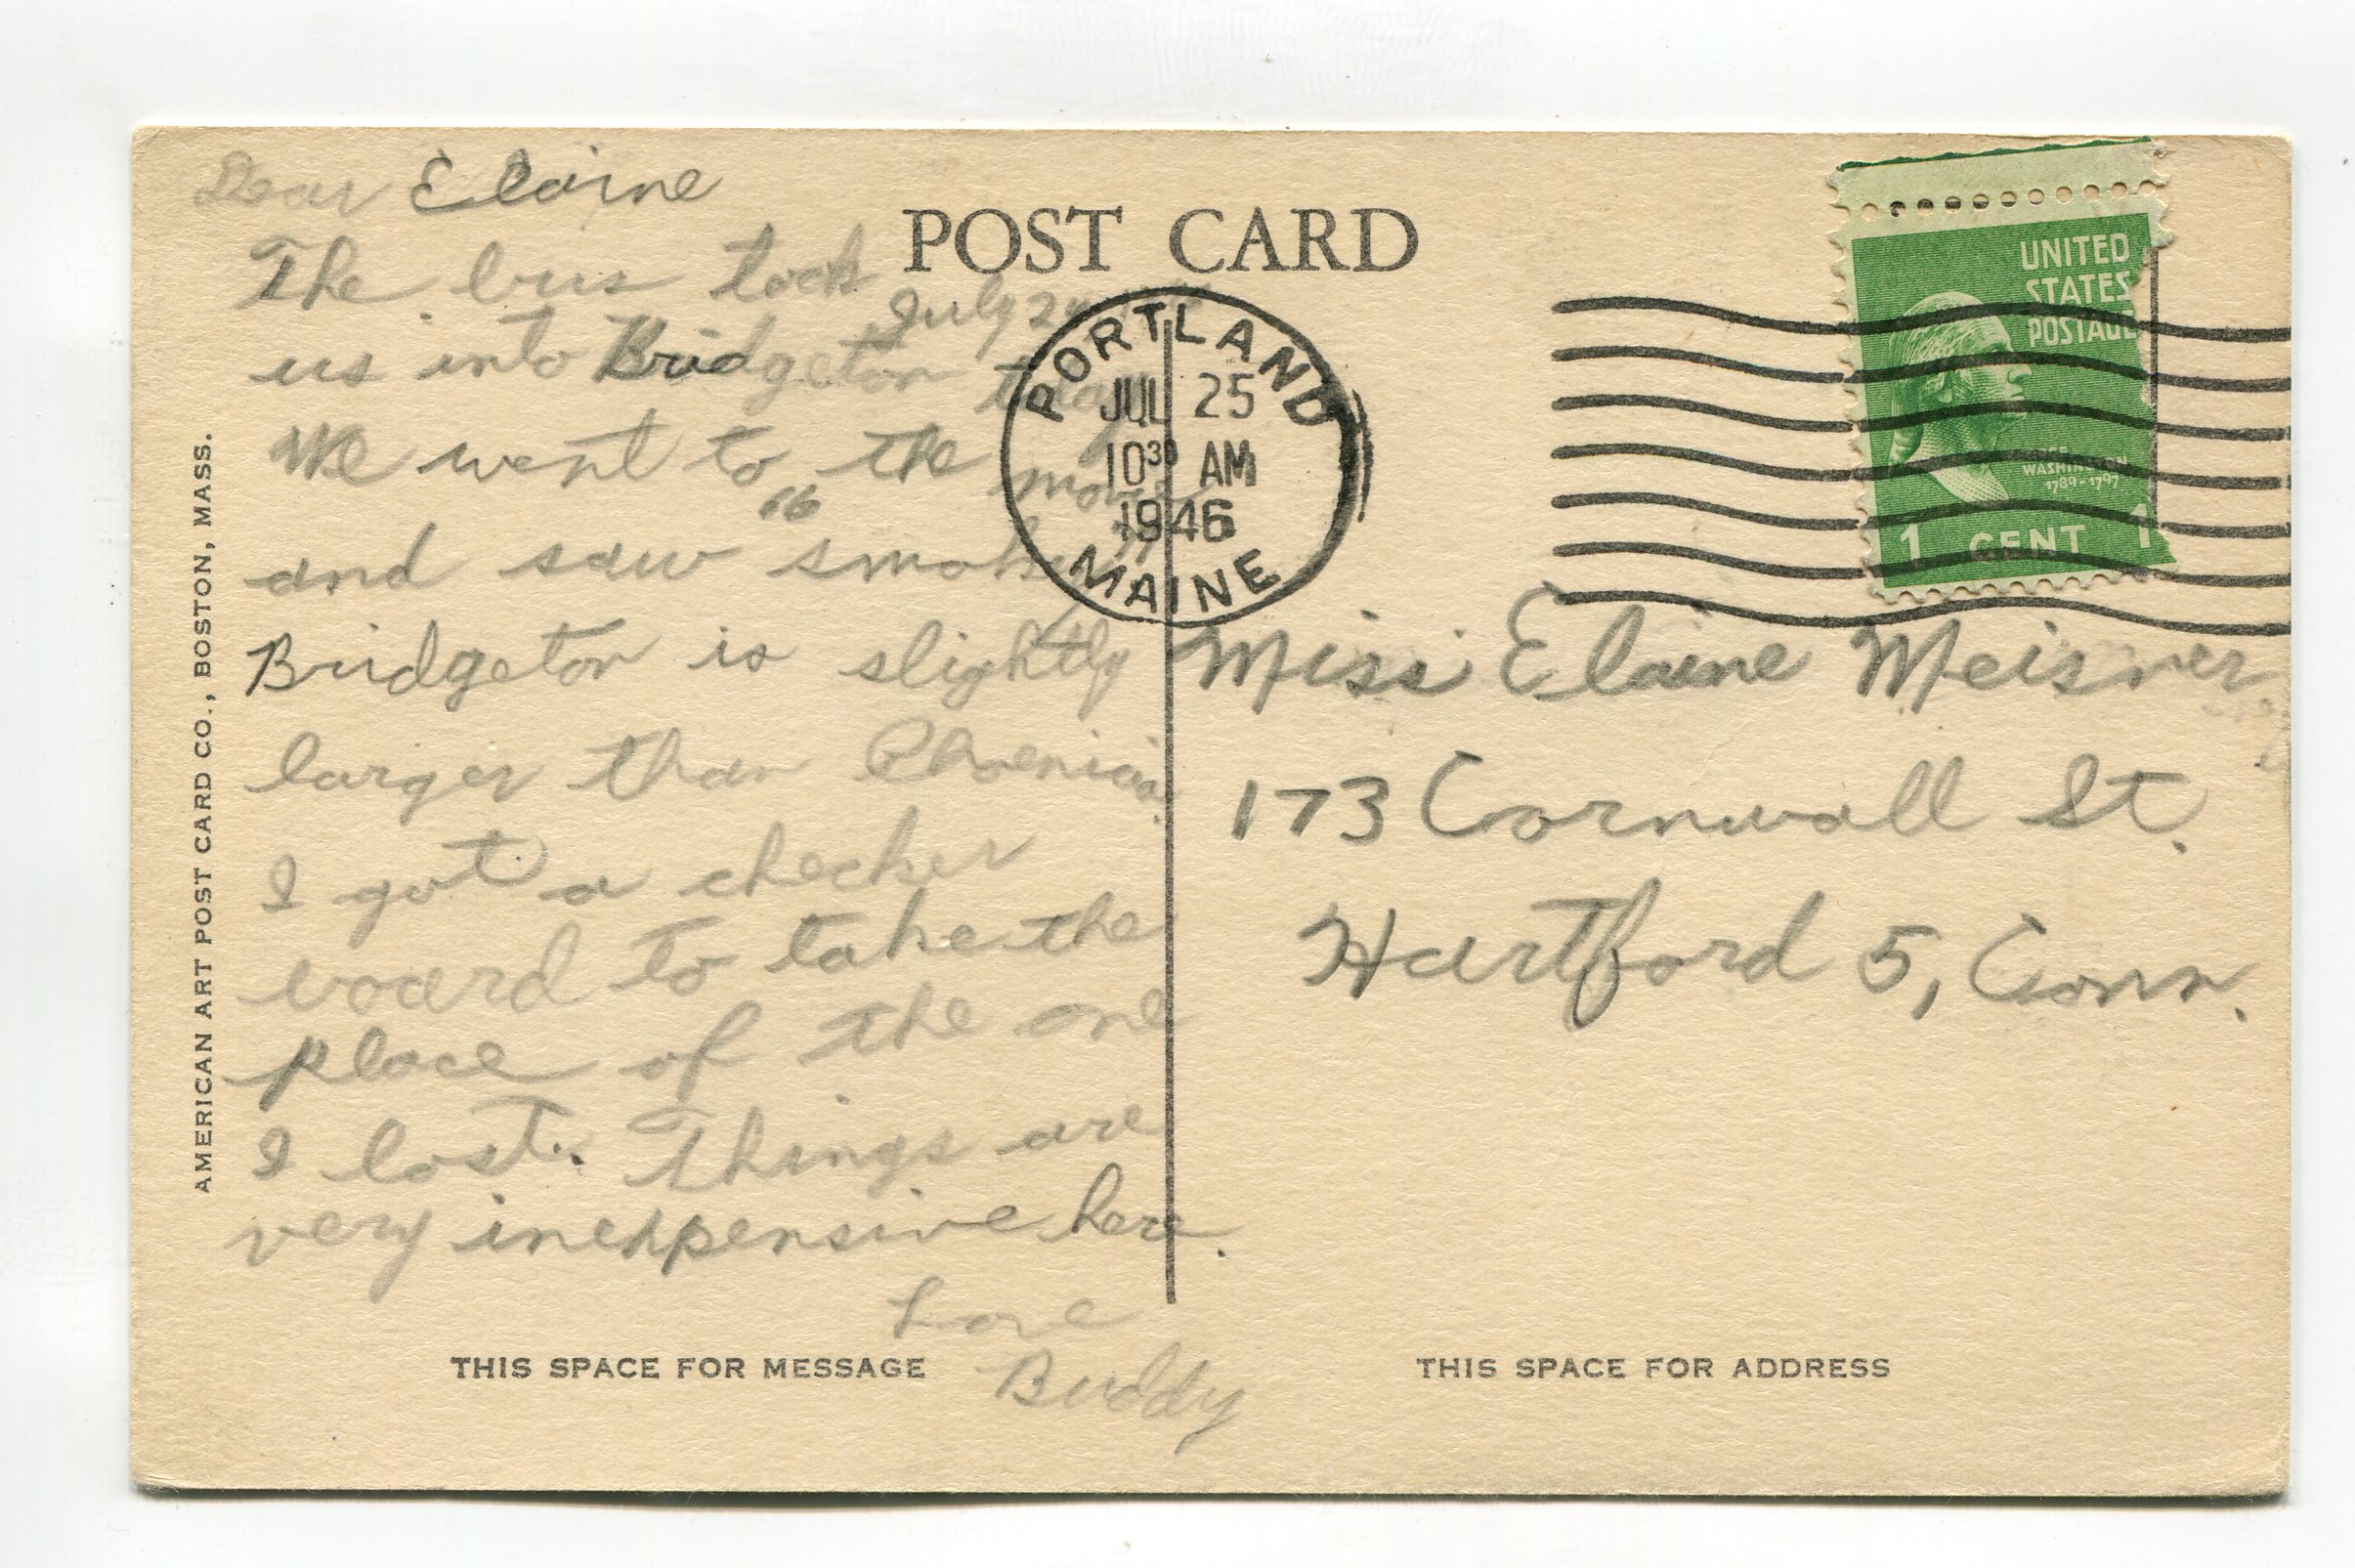 Dear Elaine
The bus took
us into Bridgeton today
We went to the movies
and saw "smoky"
Bridgeton is slightly
larger than Phoenicia.
I got a checker
board to take the
place of the one
I lost. Things are
very inexpensive here.
Love
Buddy
July 24
POST CARD
PORTLAND
JUL 25
10 30 AM
1946
MAINE
UNITED
STATES
POSTAGE
GEORGE
WASHINGTON
1789-1797
1 CENT 1
Miss Elaine Meisner
173 Cornwall St.
Hartford 5, Conn.
THIS SPACE FOR MESSAGE
THIS SPACE FOR ADDRESS
AMERICAN ART POST CARD CO., BOSTON, MASS.